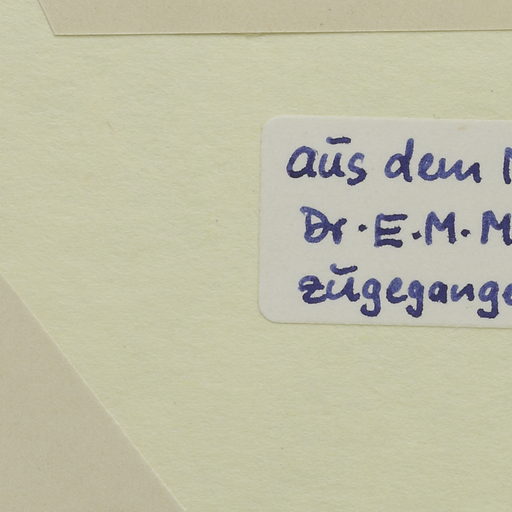 aus dem
Dr. E. M. M
zugegange